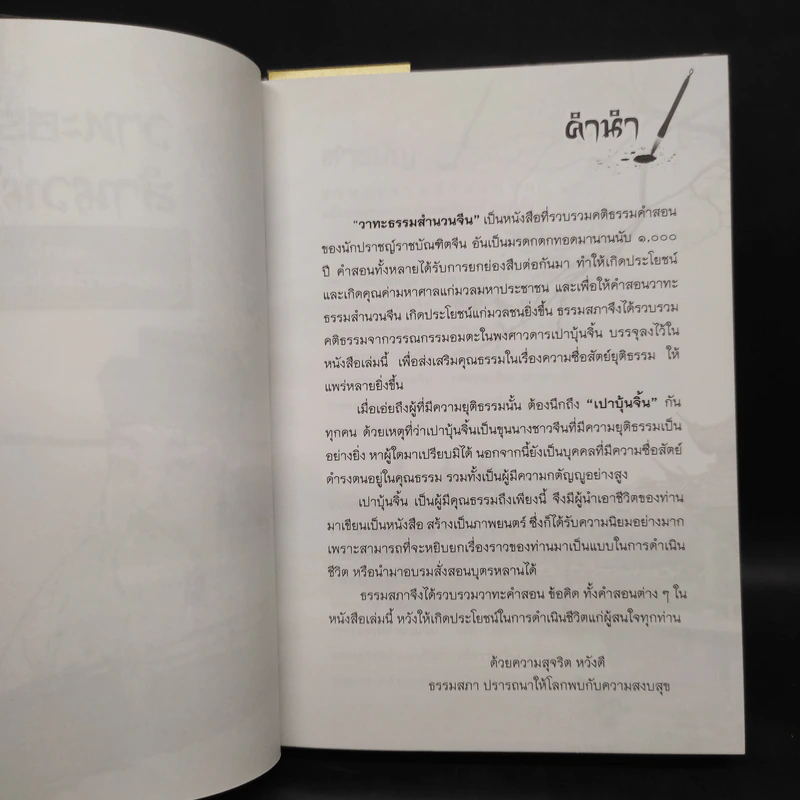 คำนำ
"วาทะธรรมสำนวนจีน" เป็นหนังสือที่รวบรวมคติธรรมคำสอน
ของนักปราชญ์ราชบัณฑิตจีน อันเป็นมรดกตกทอดมานานนับ ๑,๐๐๐
ปี คำสอนทั้งหลายได้รับการยกย่องสืบต่อกันมา ทำให้เกิดประโยชน์
และเกิดคุณค่ามหาศาลแก่มวลมหาประชาชน และเพื่อให้คำสอนวาทะ
ธรรมสำนวนจีน เกิดประโยชน์แก่มวลชนยิ่งขึ้น ธรรมสภาจึงได้รวบรวม
คติธรรมจากวรรณกรรมอมตะในพงศาวดารเปาบุ้นจิ้น บรรจุลงไว้ใน
หนังสือเล่มนี้ เพื่อส่งเสริมคุณธรรมในเรื่องความซื่อสัตย์ยุติธรรม ให้
แพร่หลายยิ่งขึ้น
เมื่อเอ่ยถึงผู้ที่มีความยุติธรรมนั้น ต้องนึกถึง "เปาบุ้นจิ้น" กัน
ทุกคน ด้วยเหตุที่ว่าเปาบุ้นจิ้นเป็นขุนนางชาวจีนที่มีความยุติธรรมเป็น
อย่างยิ่ง หาผู้ใดมาเปรียบมิได้ นอกจากนี้ยังเป็นบุคคลที่มีความซื่อสัตย์
ดำรงตนอยู่ในคุณธรรม รวมทั้งเป็นผู้มีความกตัญญูอย่างสูง
เปาบุ้นจิ้น เป็นผู้มีคุณธรรมถึงเพียงนี้ จึงมีผู้นำเอาชีวิตของท่าน
มาเขียนเป็นหนังสือ สร้างเป็นภาพยนตร์ ซึ่งก็ได้รับความนิยมอย่างมาก
เพราะสามารถที่จะหยิบยกเรื่องราวของท่านมาเป็นแบบในการดำเนิน
ชีวิต หรือนำมาอบรมสั่งสอนบุตรหลานได้
ธรรมสภาจึงได้รวบรวมวาทะคำสอน ข้อคิด ทั้งคำสอนต่าง ๆ ใน
หนังสือเล่มนี้ หวังให้เกิดประโยชน์ในการดำเนินชีวิตแก่ผู้สนใจทุกท่าน
ด้วยความสุจริต หวังดี
ธรรมสภา ปรารถนาให้โลกพบกับความสงบสุข